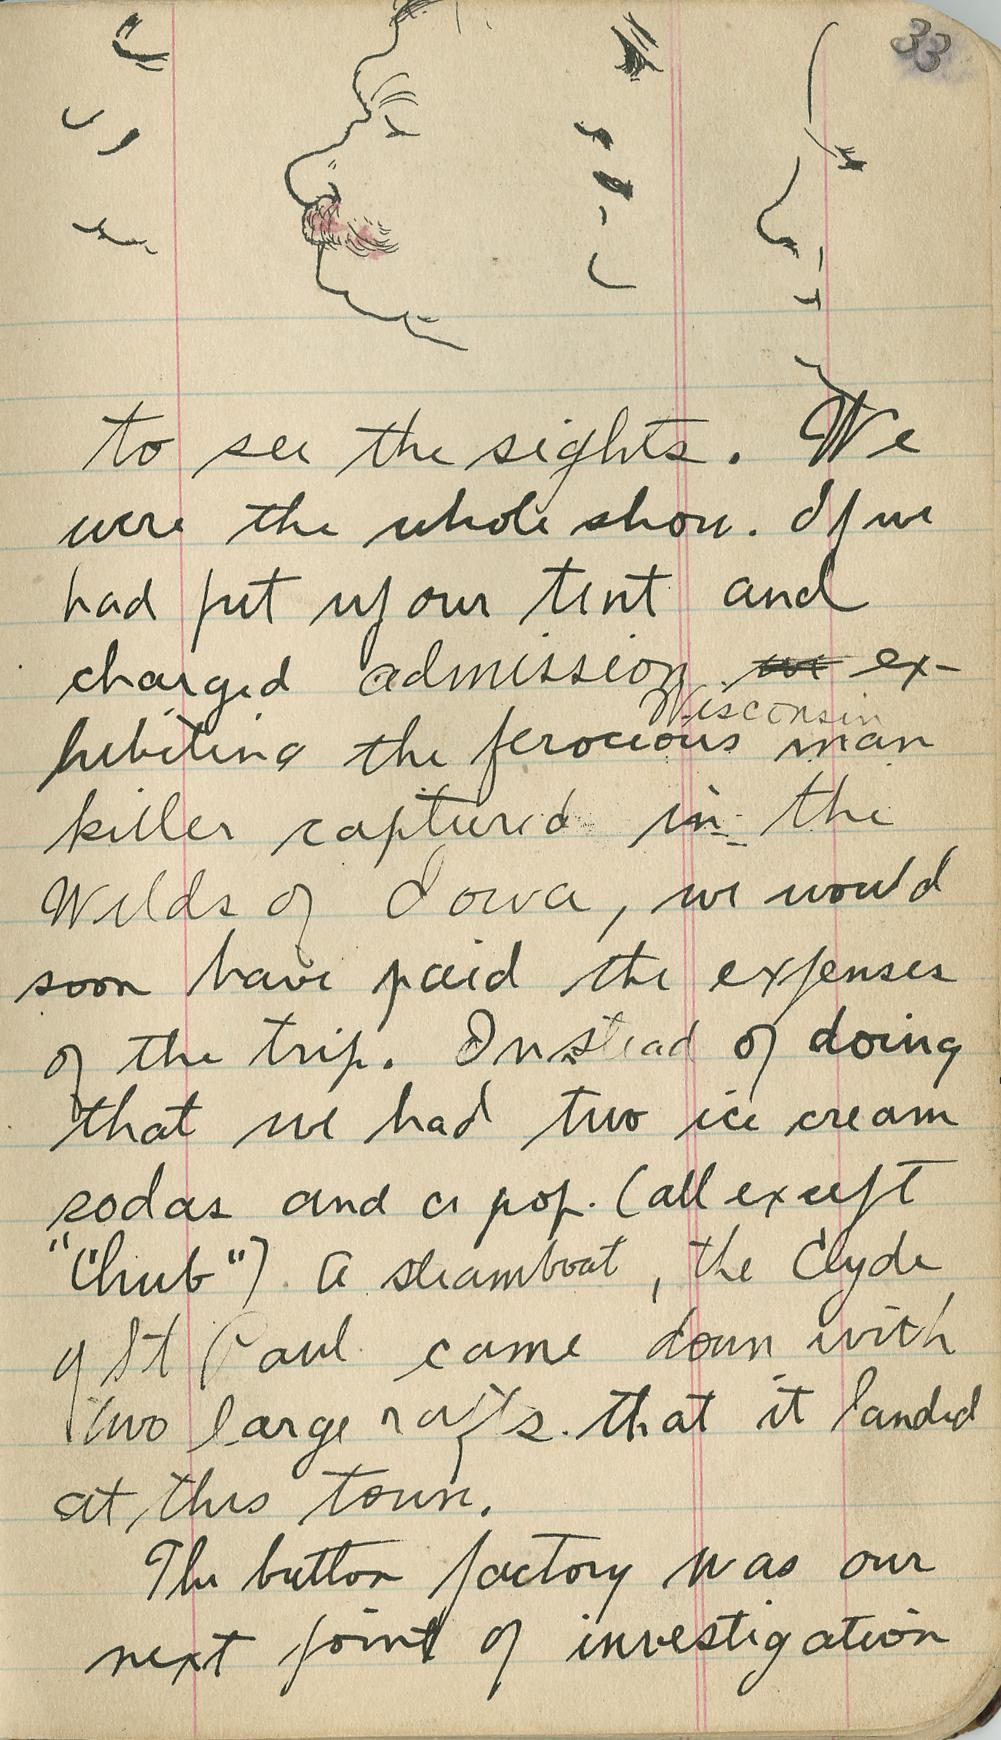 33
to see the sights. We
were the whole show. If we
had put up our tent and
charged admission we ex-
Wisconsin
hibiting the ferocious man
killer captured in the
Wilds of Iowa, we would
soon have paid the expenses
of the trip. Instead of doing
that we had two ice cream
sodas and a pop. (all except
"Chub") A steamboat, the Clyde
of St Paul came down with
two large rafts that it landed
at this town.
The button factory was our
next point of investigation